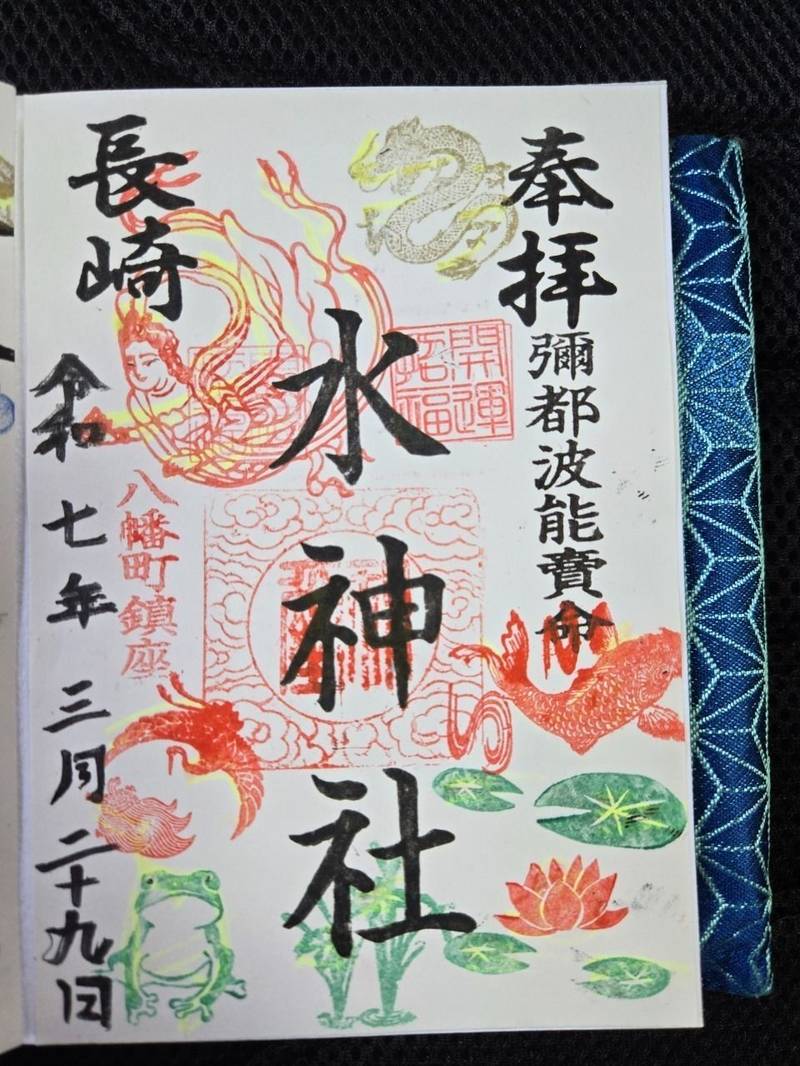 奉拝
彌都波能賣命
開運
招福
水神社
長崎
八幡町鎮座
令和七年三月二十九日